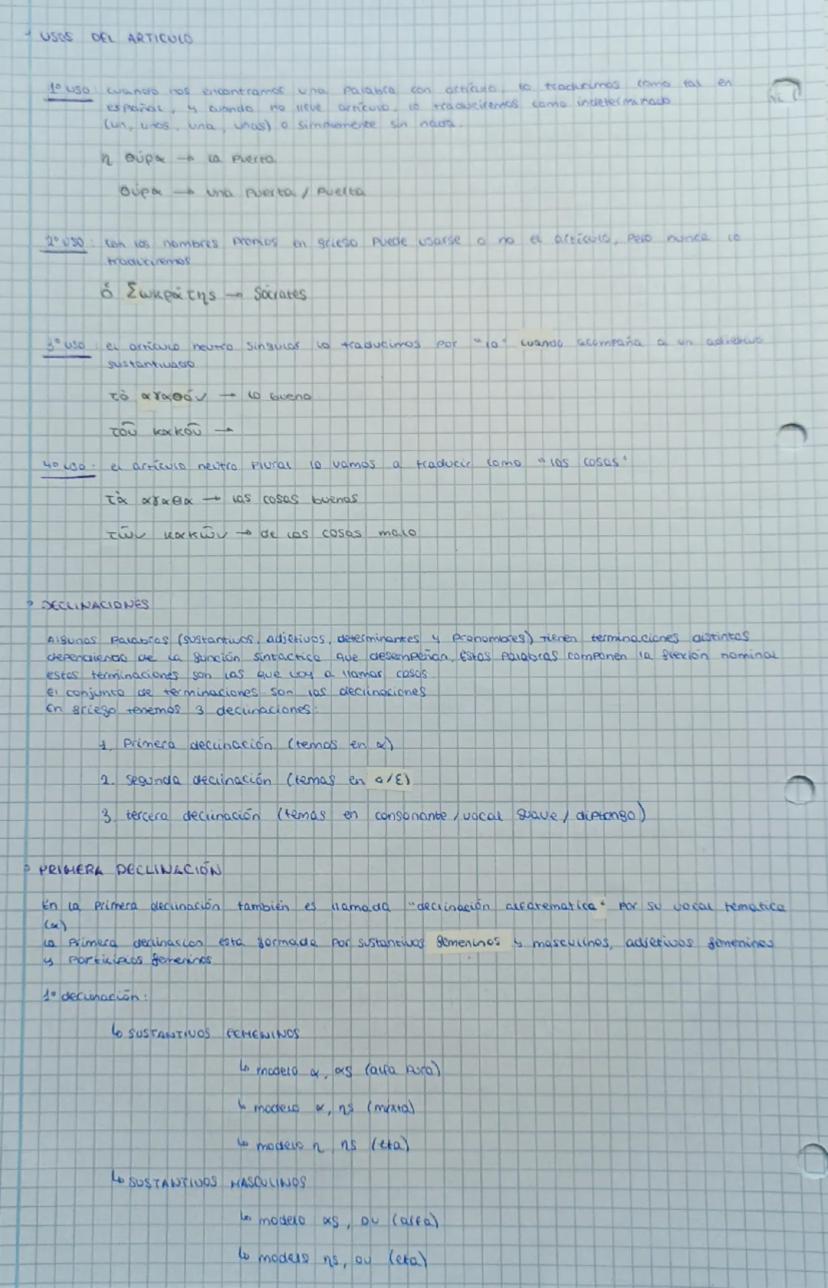 USOS DEL ARTICULO
1º uso: cuando nos encontramos una palabra con artículo, lo traducimos como tal en
español, y cuando no lleve artículo, lo traduciremos como indeterminado
(un, unos, una, unas) o simplemente sin nada.
η θύρα → la puerta
θύρα → una puerta / puerta
2º uso: con los nombres propios en griego puede usarse o no el artículo, pero nunca lo
traduciremos
ὁ Σωκράτης → Sócrates
3º uso: el artículo neutro singular lo traducimos por "lo" cuando acompaña a un adjetivo
sustantivado
τὸ αγαθόν → lo bueno
τοῦ κακοῦ →
4º uso: el artículo neutro plural lo vamos a traducir como "las cosas"
τὰ αγαθα → las cosas buenas
τῶν κακῶν → de las cosas malo
DECLINACIONES
Algunas palabras (sustantivos, adjetivos, determinantes y pronombres) tienen terminaciones distintas
dependiendo de la función sintáctica que desempeñan. Estas palabras componen la flexión nominal
estas terminaciones son las que voy a llamar casos
El conjunto de terminaciones son las declinaciones
En griego tenemos 3 declinaciones:
1. Primera declinación (temas en α)
2. segunda declinación (temas en o/ε)
3. tercera declinación (temas en consonante / vocal suave / diptongo)
PRIMERA DECLINACIÓN
En la primera declinación también es llamada "declinación alfatematica" por su vocal tematica
(α)
La primera declinacion esta formada por sustantivos femeninos y masculinos, adjetivos femeninos
y participios femeninos
1º declinación:
↳ SUSTANTIVOS FEMENINOS
↳ modelo α, ας (alfa pura)
↳ modelo α, ης (mixta)
↳ modelo η ης (eta)
↳ SUSTANTIVOS MASCULINOS
↳ modelo ας, ου (alfa)
↳ modelo ης, ου (eta)